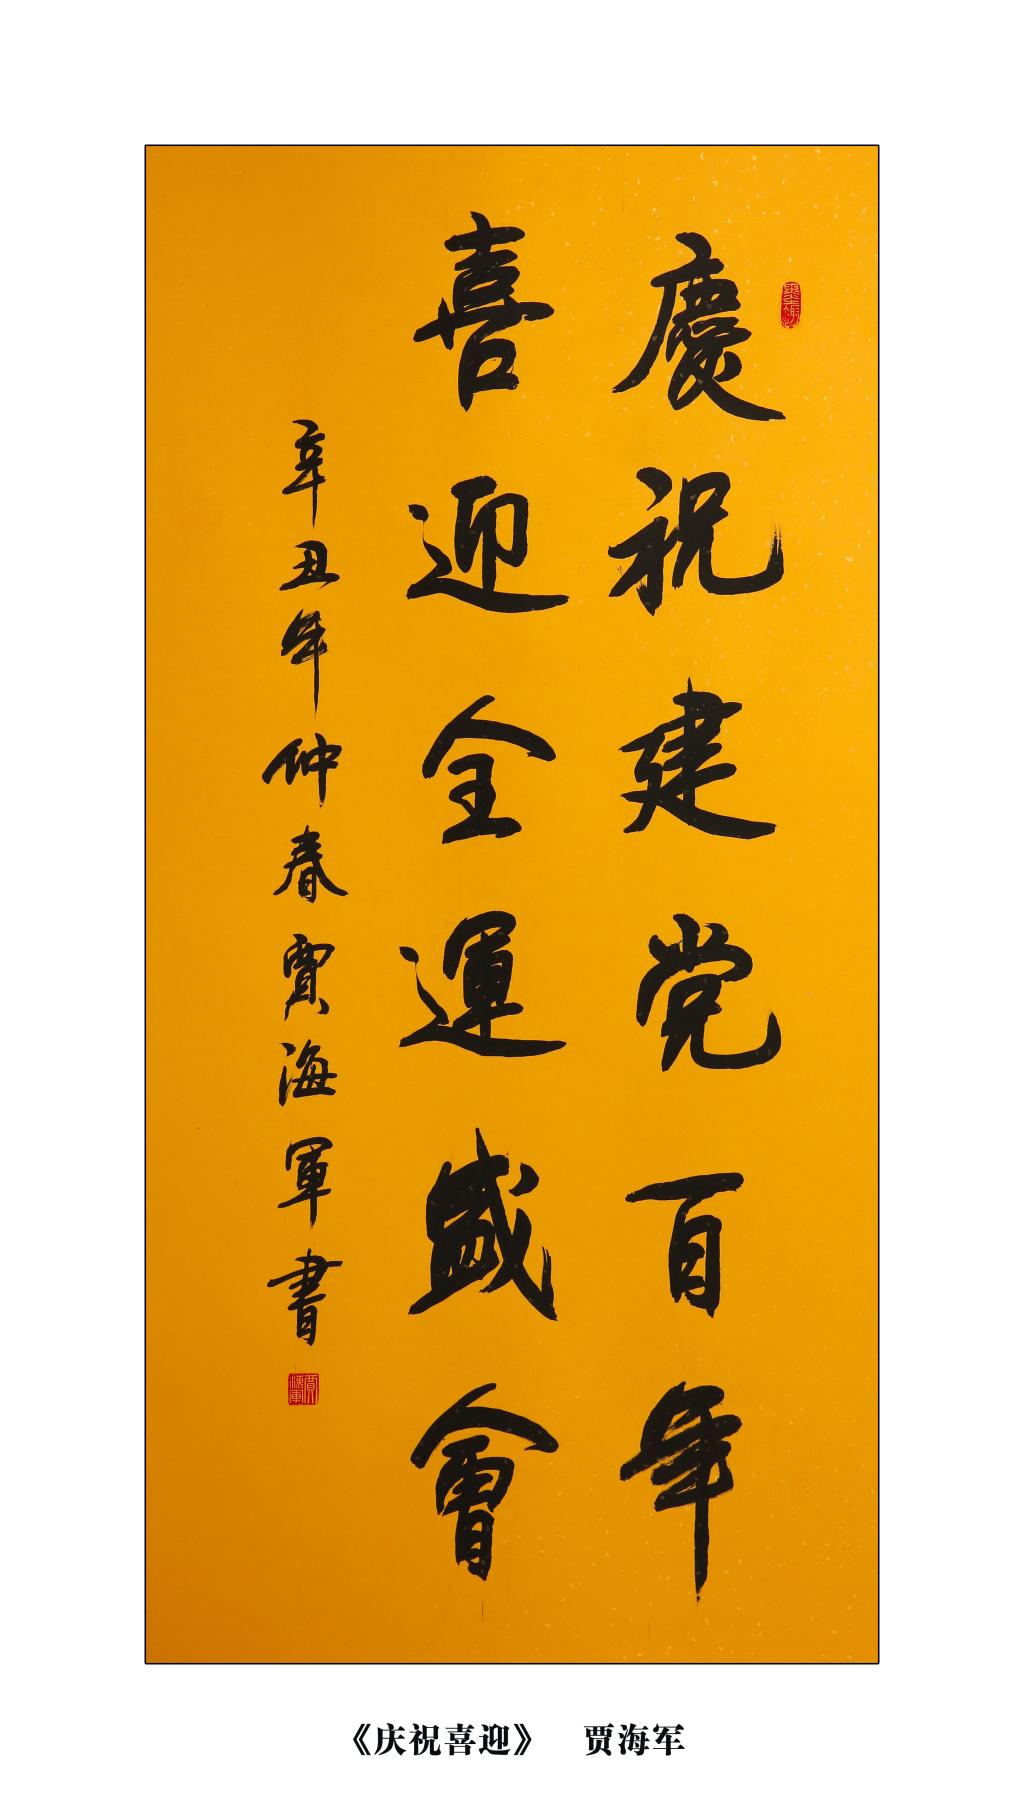 慶祝建党百年
喜迎全運盛會
辛丑年仲春賈海軍書
賈海軍
《庆祝喜迎》 贾海军